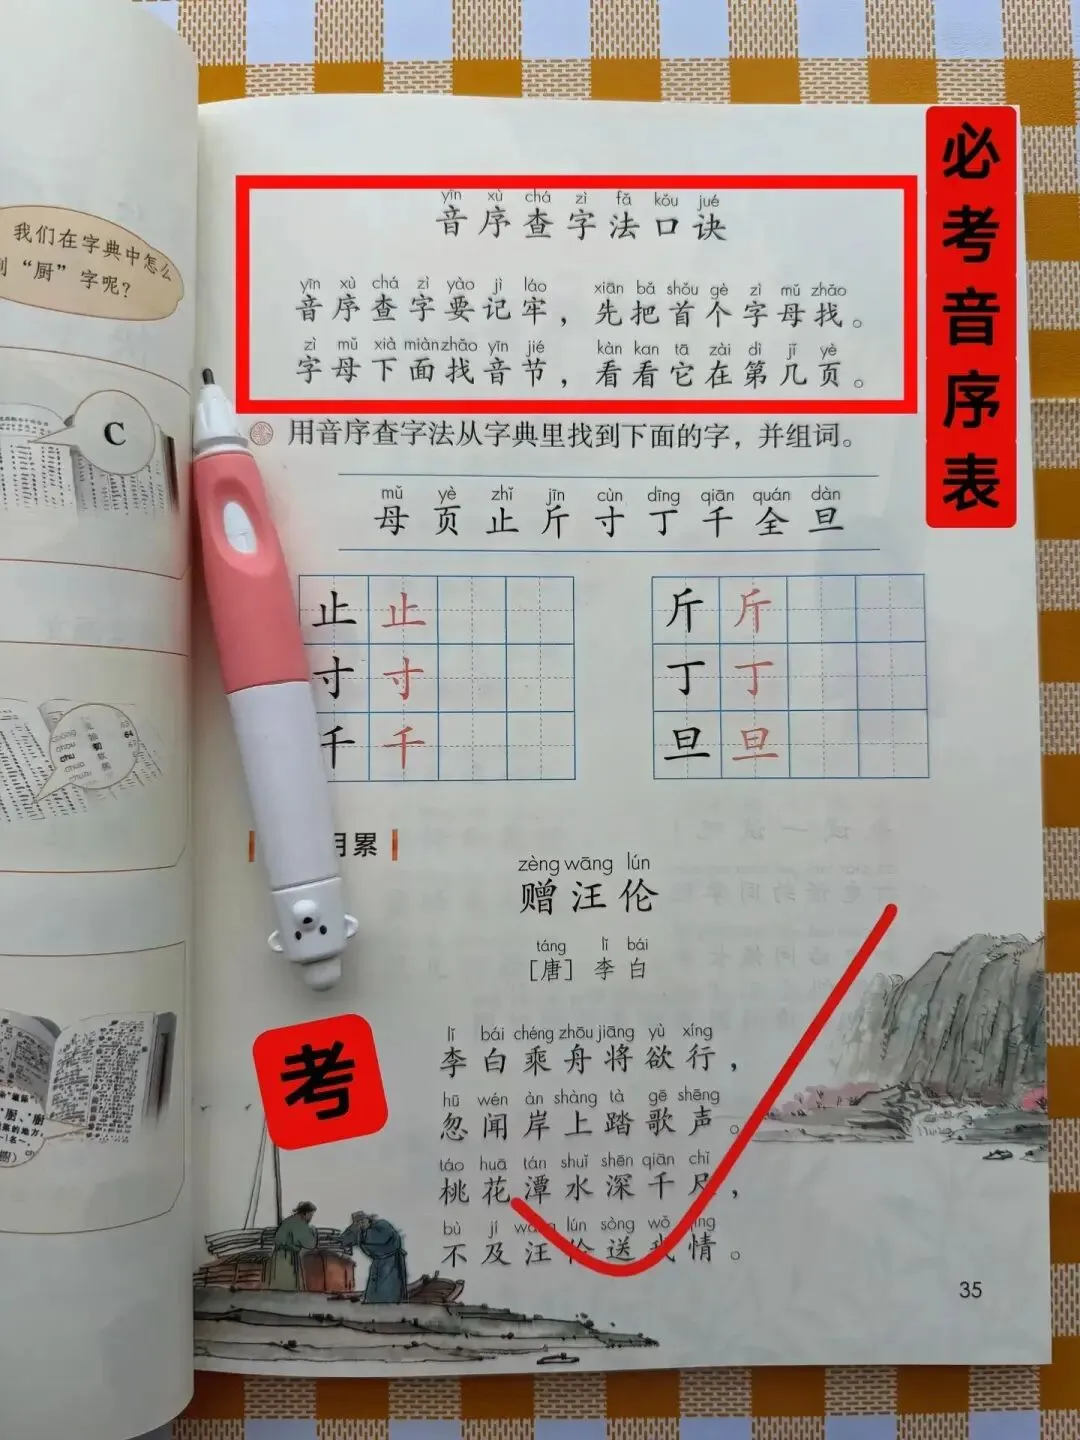 我们在字典中怎么
到“厨”字呢？
C
必考音序表
yīn xù chá zì fǎ kǒu jué
音序查字法口诀
yīn xù chá zì yào jì láo xiān bǎ shǒu gè zì mǔ zhǎo
音序查字要记牢，先把首个字母找。
zì mǔ xià miàn zhǎo yīn jié kàn kan tā zài dì jǐ yè
字母下面找音节，看看它在第几页。
用音序查字法从字典里找到下面的字，并组词。
mǔ yè zhǐ jīn cùn dīng qiān quán dàn
母页止斤寸丁千全旦
止 止 斤 斤
寸 寸 丁 丁
千 千 旦 旦
月累
zèng wāng lún
赠汪伦
táng lǐ bái
［唐］李白
考
lǐ bái chéng zhōu jiāng yù xíng
李白乘舟将欲行，
hū wén àn shàng tà gē shēng
忽闻岸上踏歌声。
táo huā tán shuǐ shēn qiān chǐ
桃花潭水深千尺，
bù jí wāng lún sòng wǒ qíng
不及汪伦送我情。
35